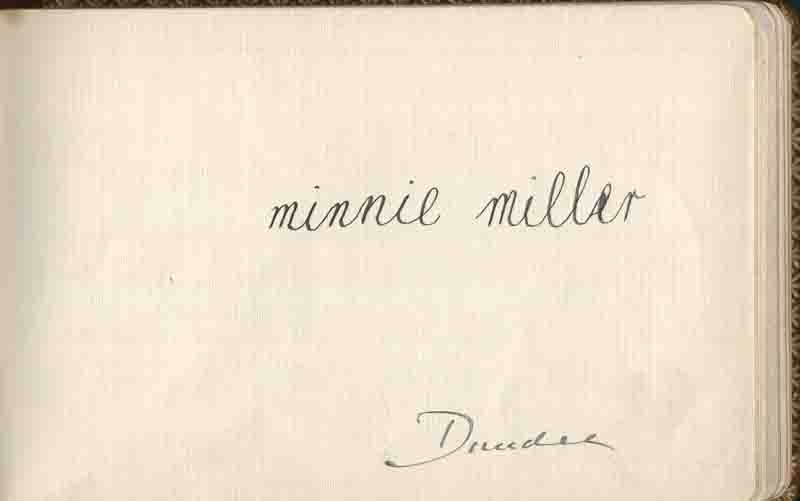 minnie miller
Dundee